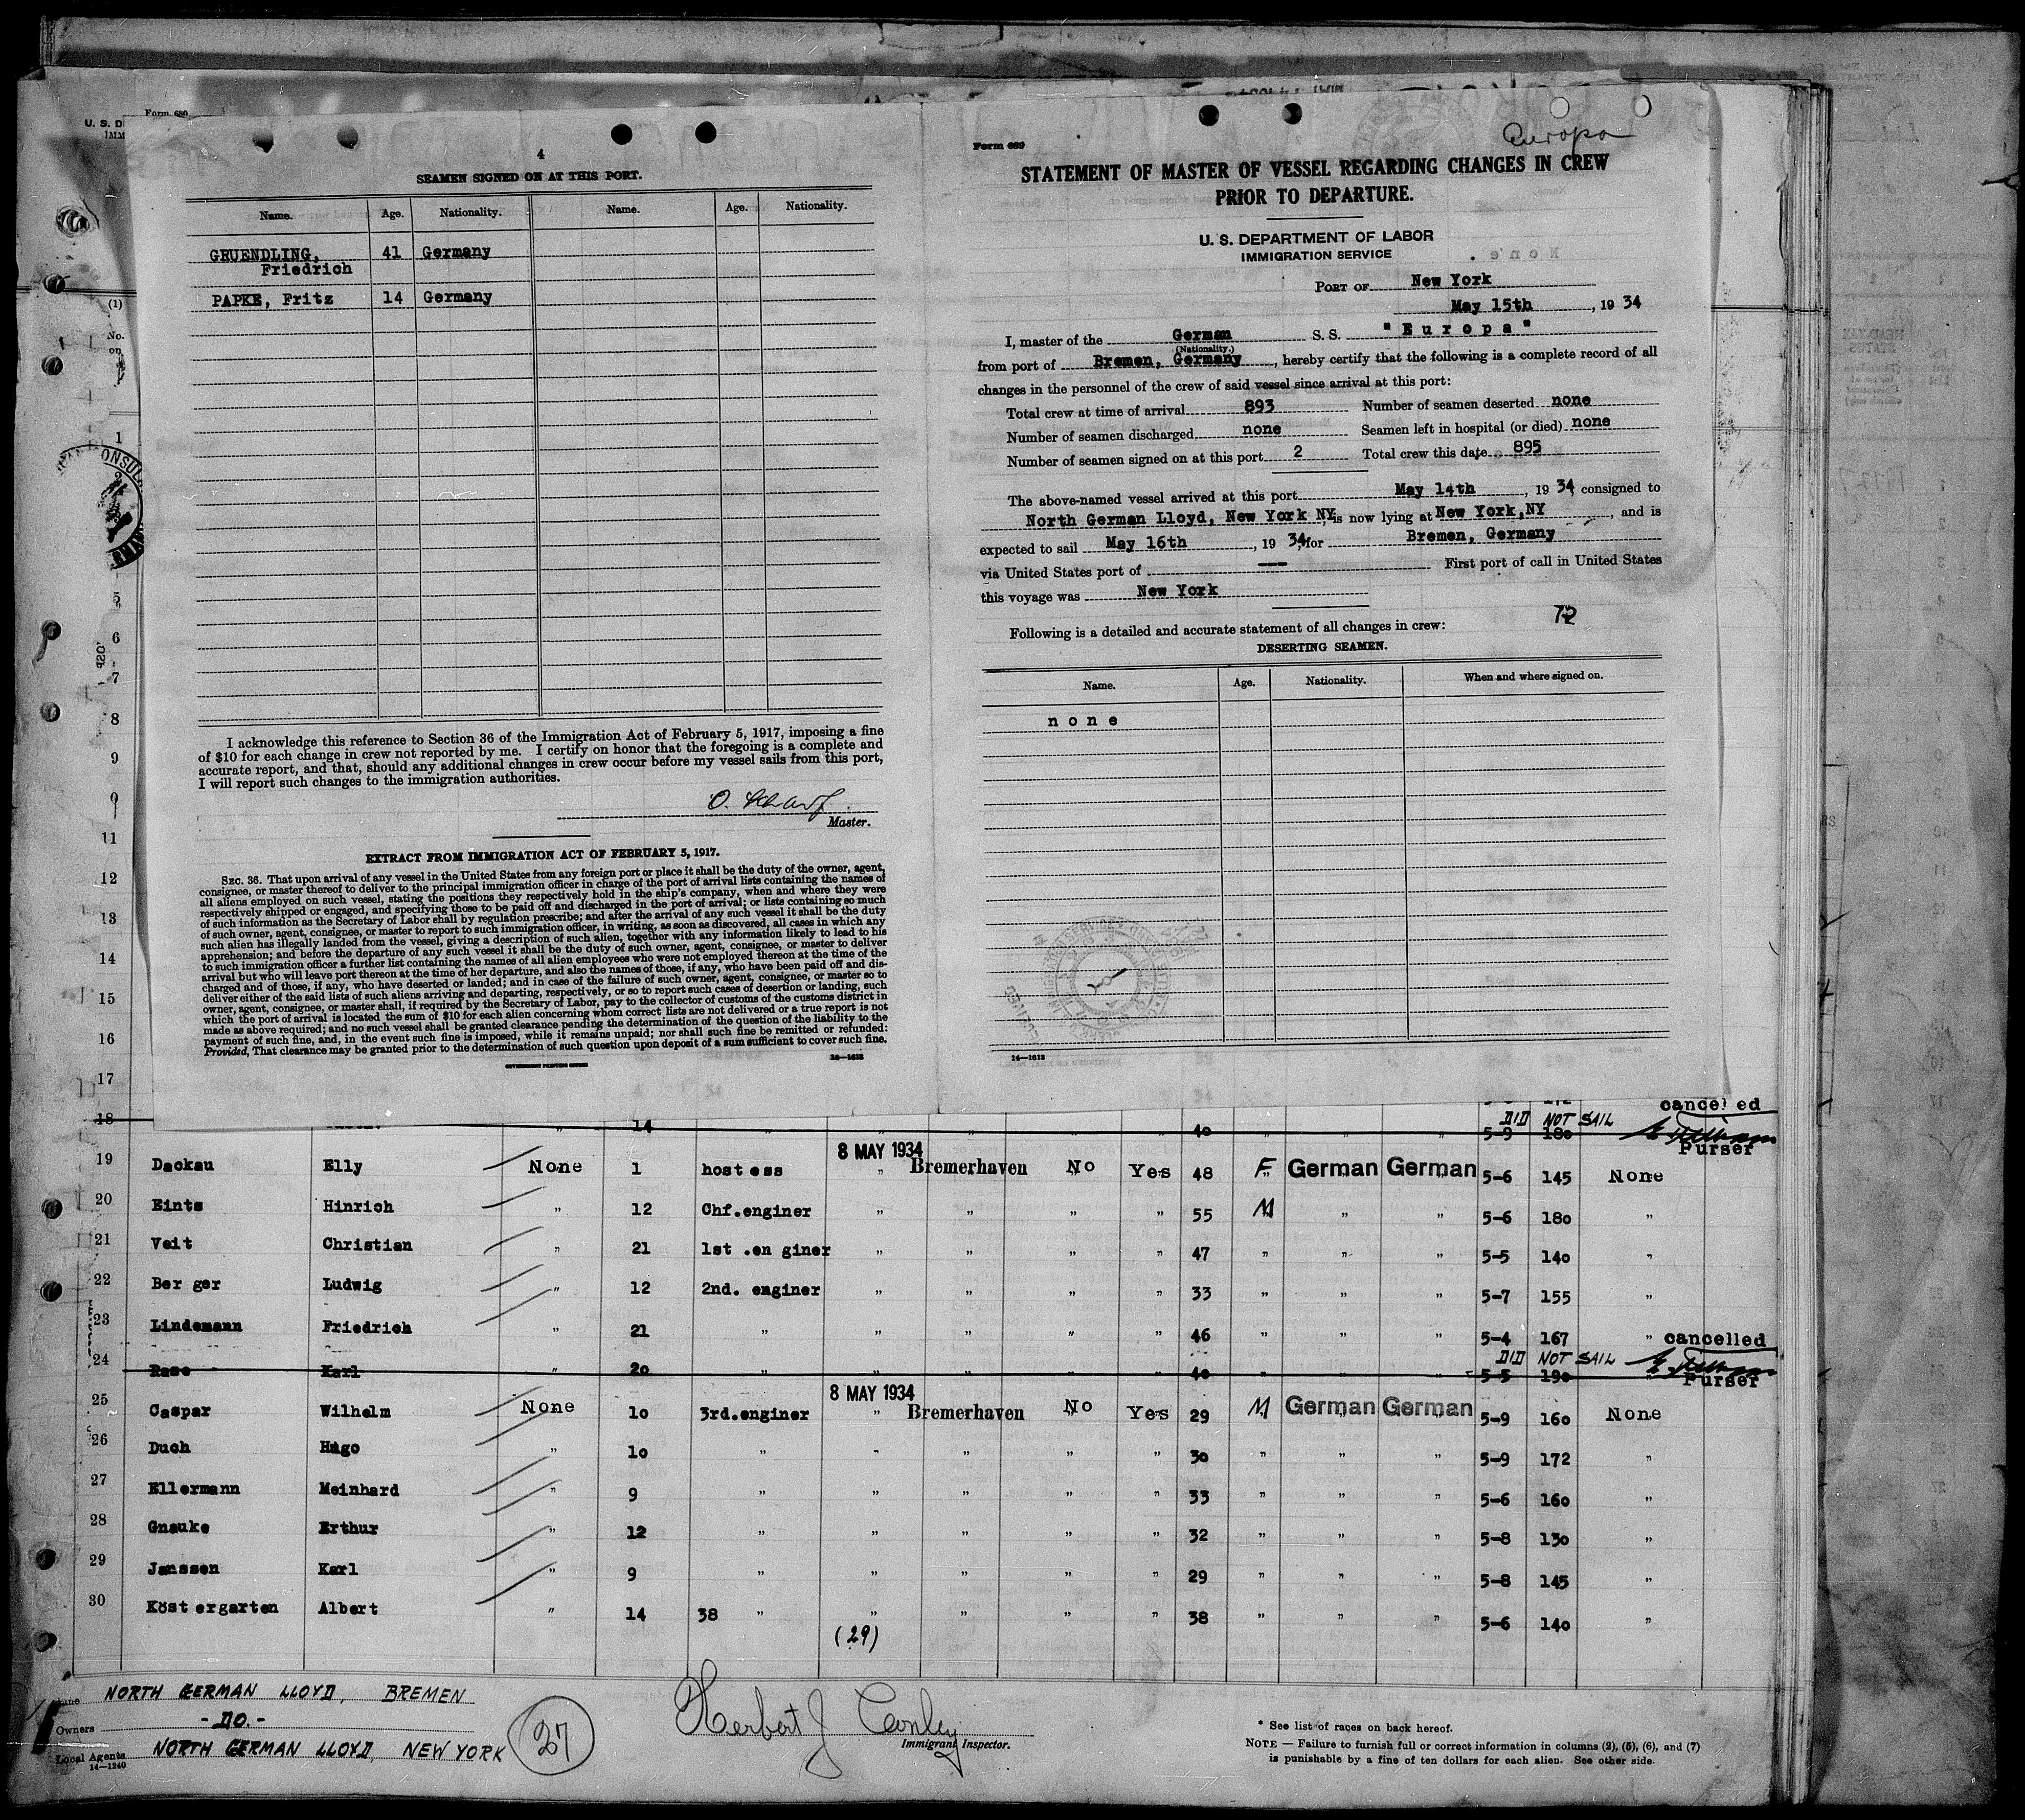 Form 680
U. S. D
IMM
4
SEAMEN SIGNED ON AT THIS PORT.
Name. Age. Nationality. Name. Age. Nationality.
GRUENDLING, 41 Germany
Friedrich
PAPKE, Fritz 14 Germany
I acknowledge this reference to Section 36 of the Immigration Act of February 5, 1917, imposing a fine
of $10 for each change in crew not reported by me. I certify on honor that the foregoing is a complete and
accurate report, and that, should any additional changes in crew occur before my vessel sails from this port,
I will report such changes to the immigration authorities.
O. Scharf
Master.
EXTRACT FROM IMMIGRATION ACT OF FEBRUARY 5, 1917.
SEC. 36. That upon arrival of any vessel in the United States from any foreign port or place it shall be the duty of the owner, agent,
consignee, or master thereof to deliver to the principal immigration officer in charge of the port of arrival lists containing the names of
all aliens employed on such vessel, stating the positions they respectively hold in the ship's company, when and where they were
respectively shipped or engaged, and specifying those to be paid off and discharged in the port of arrival; or lists containing so much
of such information as the Secretary of Labor shall by regulation prescribe; and after the arrival of any such vessel it shall be the duty
of such owner, agent, consignee, or master to report to such immigration officer, in writing, as soon as discovered, all cases in which any
such alien has illegally landed from the vessel, giving a description of such alien, together with any information likely to lead to his
apprehension; and before the departure of any such vessel it shall be the duty of such owner, agent, consignee, or master to deliver
to such immigration officer a further list containing the names of all alien employees who were not employed thereon at the time of the
arrival but who will leave port thereon at the time of her departure, and also the names of those, if any, who have been paid off and dis-
charged and of those, if any, who have deserted or landed; and in case of the failure of such owner, agent, consignee, or master so to
deliver either of the said lists of such aliens arriving and departing, respectively, or so to report such cases of desertion or landing, such
owner, agent, consignee, or master shall, if required by the Secretary of Labor, pay to the collector of customs of the customs district in
which the port of arrival is located the sum of $10 for each alien concerning whom correct lists are not delivered or a true report is not
made as above required; and no such vessel shall be granted clearance pending the determination of the question of the liability to the
payment of such fine, and, in the event such fine is imposed, while it remains unpaid; nor shall such fine be remitted or refunded:
Provided, That clearance may be granted prior to the determination of such question upon deposit of a sum sufficient to cover such fine.
14—1613
GOVERNMENT PRINTING OFFICE
Form 689
Europa
STATEMENT OF MASTER OF VESSEL REGARDING CHANGES IN CREW
PRIOR TO DEPARTURE.
U. S. DEPARTMENT OF LABOR
IMMIGRATION SERVICE
PORT OF New York
May 15th, 19 34
I, master of the German S. S. "Europa"
(Nationality.)
from port of Bremen, Germany, hereby certify that the following is a complete record of all
changes in the personnel of the crew of said vessel since arrival at this port:
Total crew at time of arrival 893 Number of seamen deserted none
Number of seamen discharged none Seamen left in hospital (or died) none
Number of seamen signed on at this port 2 Total crew this date 895
The above-named vessel arrived at this port May 14th, 19 34, consigned to
North German Lloyd, New York NY, is now lying at New York,NY, and is
expected to sail May 16th, 19 34, for Bremen, Germany
via United States port of --- First port of call in United States
this voyage was New York
72
Following is a detailed and accurate statement of all changes in crew:
DESERTING SEAMEN.
Name. Age. Nationality. When and where signed on.
none
14—1613
(1)
No.
on
1
5
6
7
8
9
11
12
13
14
15
16
17
cancelled
18 14 " 40 " " " 5-9 180 DID NOT SAIL
Purser
19 Dackau Elly None 1 hostess 8 MAY 1934 " Bremerhaven No Yes 48 F German German 5-6 145 None
20 Eints Hinrich " 12 Chf.enginer " " " " 55 M " " 5-6 180 "
21 Veit Christian " 21 1st .en giner " " " " 47 " " " 5-5 140 "
22 Ber ger Ludwig " 12 2nd. enginer " " " " 33 " " " 5-7 155 "
23 Lindemann Friedrich " 21 " " " " " 46 " " " 5-4 167 "
cancelled
24 Rase Karl " 20 " " " " " 40 " " " 5-5 190 " DID NOT SAIL
Purser
25 Caspar Wilhelm None 10 3rd.enginer 8 MAY 1934 " Bremerhaven No Yes 29 M German German 5-9 160 None
26 Duch Hugo " 10 " " " " " 30 " " " 5-9 172 "
27 Ellermann Meinhard " 9 " " " " " 33 " " " 5-6 160 "
28 Gnauke Erthur " 12 " " " " " 32 " " " 5-8 130 "
29 Janssen Karl " 9 " " " " " 29 " " " 5-8 145 "
30 Köstergarten Albert " 14 38 " " " " " 38 " " " 5-6 140 "
(29)
Line NORTH GERMAN LLOYD, BREMEN
Owners -DO.-
Local Agents NORTH GERMAN LLOYD, NEW YORK
14—1240
27
Herbert J Conley
Immigrant Inspector.
* See list of races on back hereof.
NOTE — Failure to furnish full or correct information in columns (2), (5), (6), and (7)
is punishable by a fine of ten dollars for each alien. See other side.